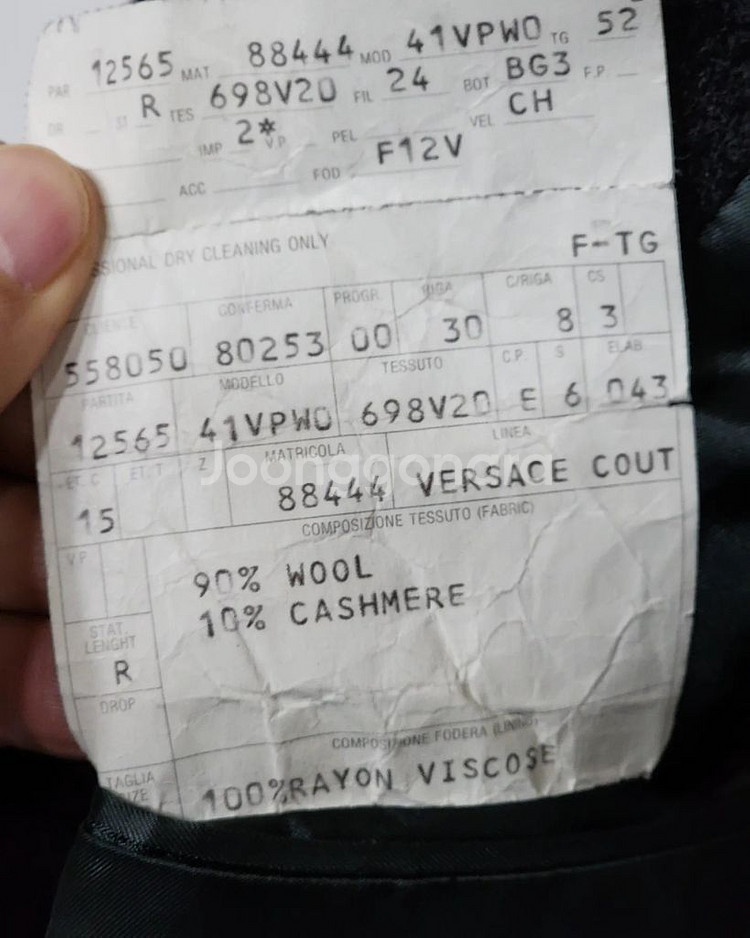 PAR 12565 MAT 88444 MOD 41VPWO TG 52
DR ST R TES 698V20 FIL 24 BOT BG3 F.P
IMP 2* V.P PEL VEL CH
ACC FOD F12V
SSIONAL DRY CLEANING ONLY F-TG
CONFERMA PROGR. RIGA C/RIGA CS
558050 80253 00 30 8 3
PARTITA MODELLO TESSUTO C.P. S ELAB.
12565 41VPWO 698V20 E 6 043
ET. C ET. T Z MATRICOLA LINEA
15 88444 VERSACE COUT
Joonggonara
COMPOSIZIONE TESSUTO (FABRIC)
V.P
90% WOOL
10% CASHMERE
STAT.
LENGHT
R
DROP
COMPOSIZIONE FODERA (LINING)
TAGLIA
SIZE
100%RAYON VISCOSE